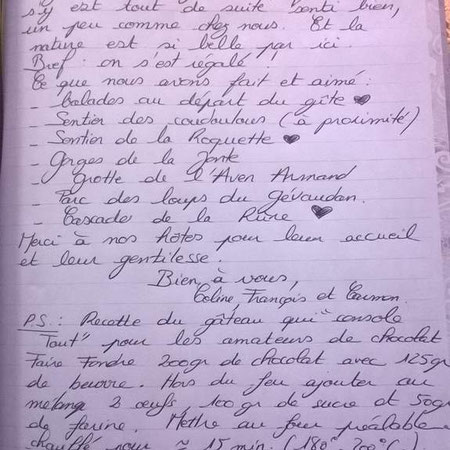 s'y est tout de suite senti bien,
un peu comme chez nous. Et la
nature est si belle par ici.
Bref : on s'est régalé !
Ce que nous avons fait et aimé :
- balades au départ du gîte ♥
- Sentier des coudoulous (à proximité)
- Sentier de la Roquette ♥
- Gorges de la Jonte
- Grotte de l'Aven Armand
- Parc des loups du Gévaudan.
- Cascade de la Rüne ♥
Merci à nos hôtes pour leur accueil
et leur gentilesse.
Bien à vous,
Coline, François et
P.S : Recette du gâteau qui "console
Tout" pour les amateurs de chocolat
Faire Fondre 200gr de chocolat avec 125gr
de beurre. Hors du feu ajouter au
mélange 2 œufs, 100 gr de sucre et 50gr
de farine. Mettre au four préalable-
chauffé pour ≈ 15 min. (180°-200°C)